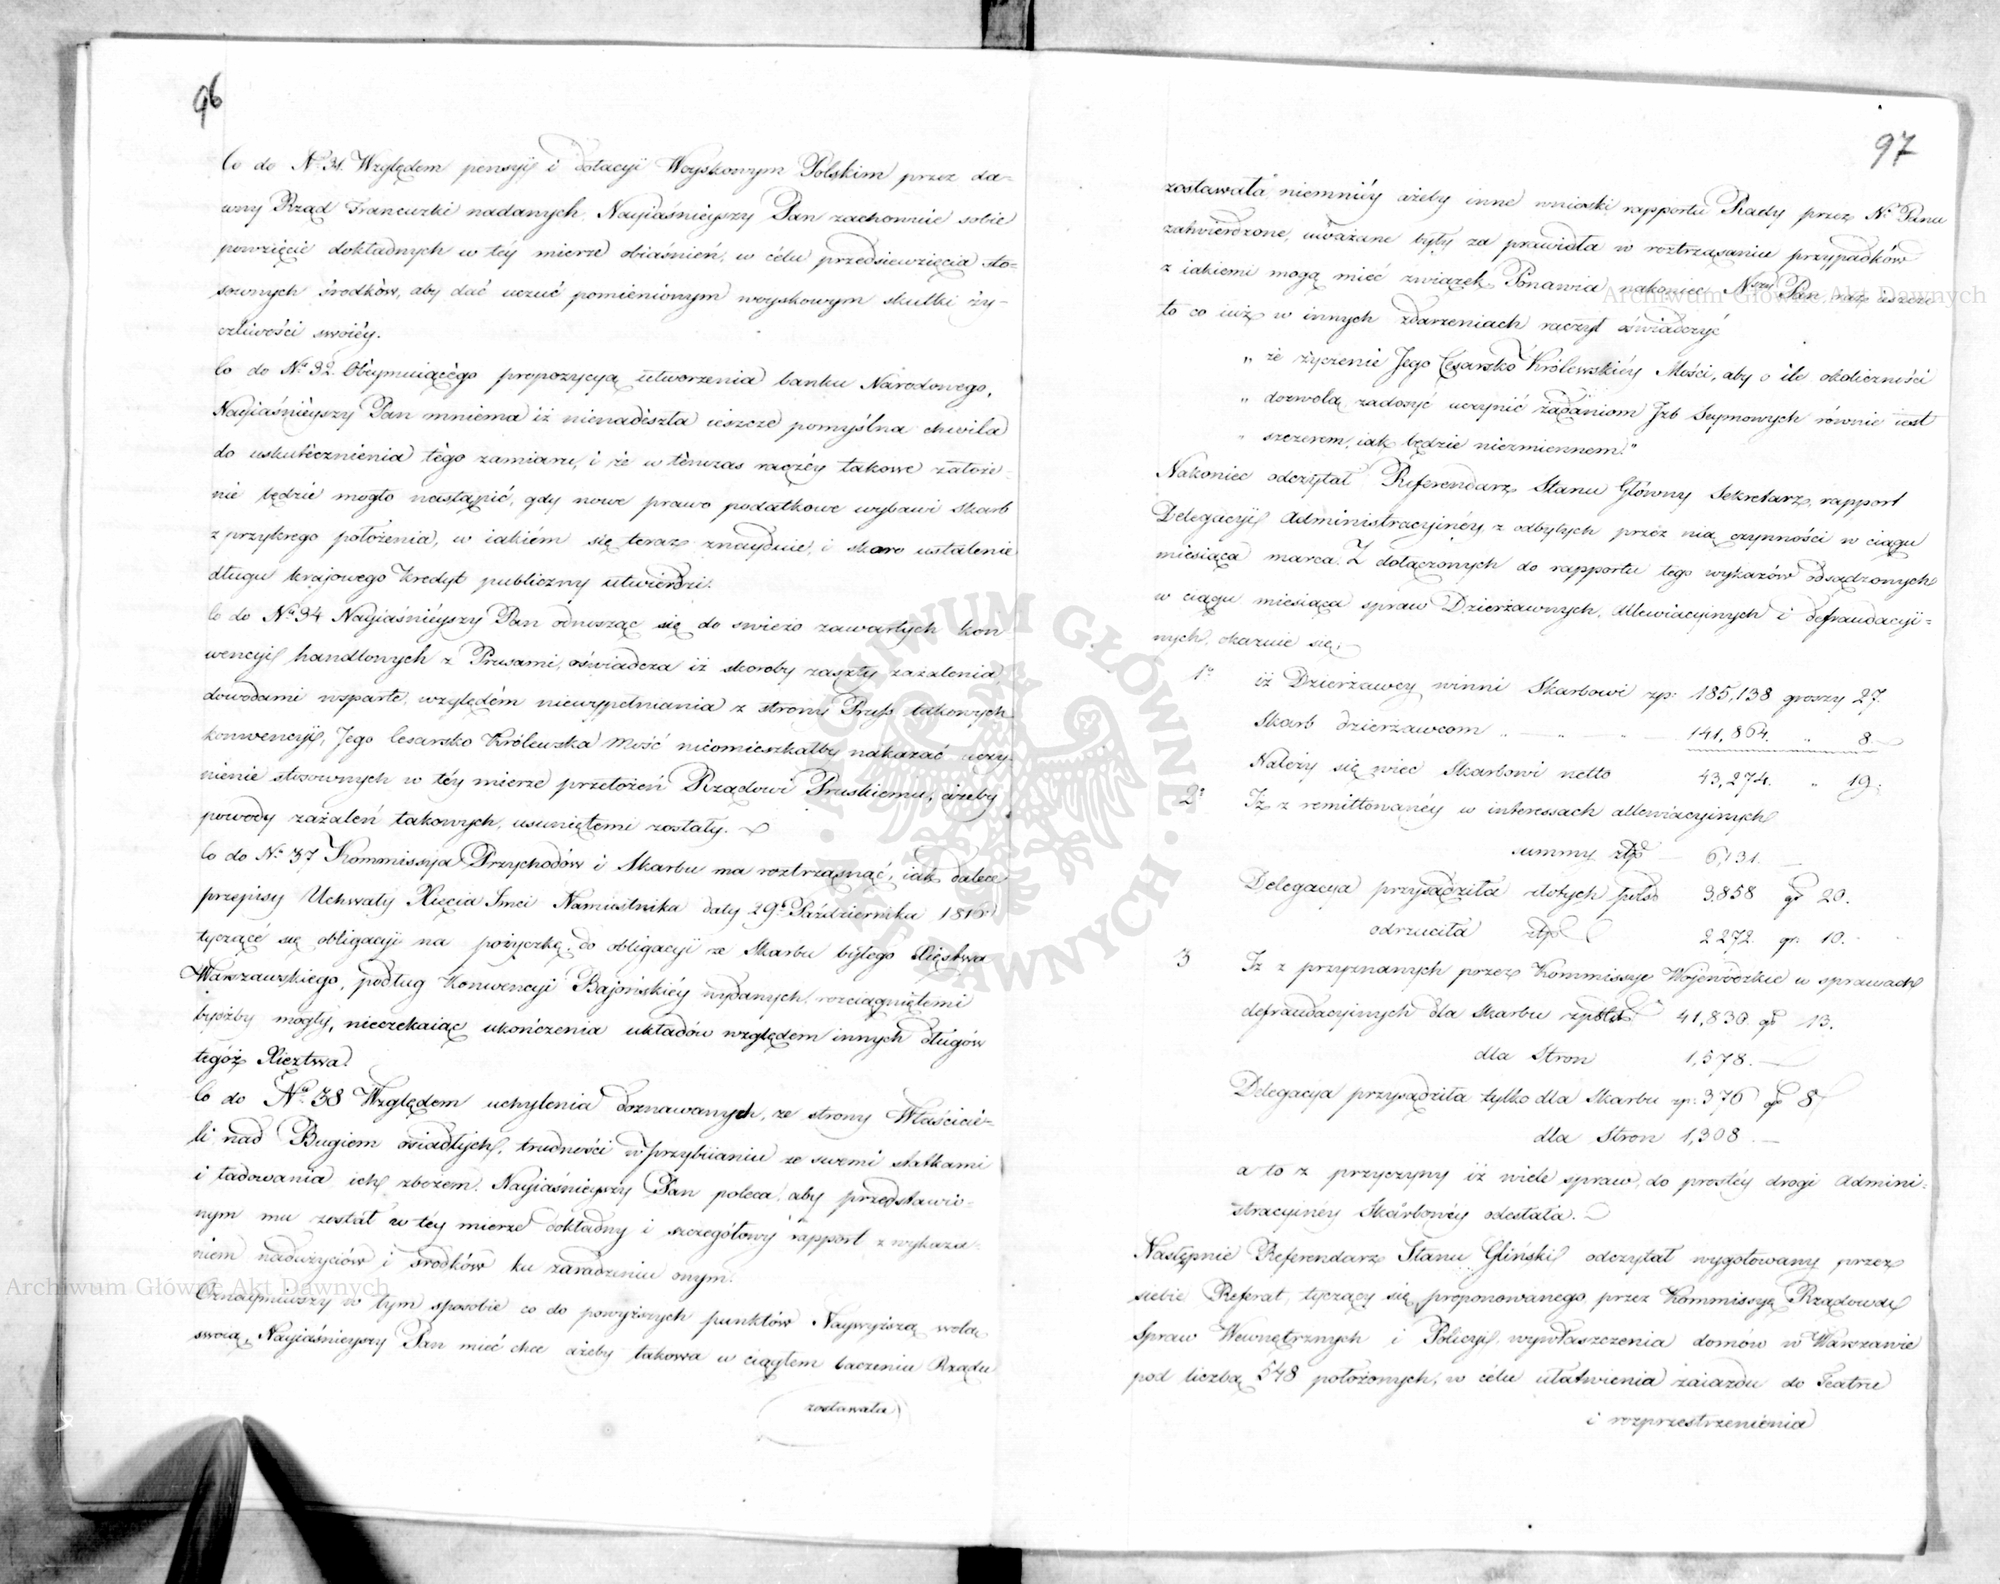 96
Co do Nº 31. Względem pensyi i dotacyi Woyskowym Polskim przez da-
wny Rząd Francuzki nadanych, Nayiaśnieyszy Pan zachowuie sobie
powzięcie dokładnych w téy mierze obiaśnień, w célu przedsiewzięcia sto-
sownych środków, aby dać uczuć pomienionym woyskowym skutki ży-
czliwości swoiéy.
Co do Nº 32. Obeymuiącégo propozycyą utworzenia banku Narodowego,
Nayiaśnieyszy Pan mniema iż nienadeszła ieszcze pomyślna chwila
do uskutecznienia tego zamiaru, i że wtenczas raczéy takowe założe-
nie będzie mogło nastąpić, gdy nowe prawo podatkowe wybawi Skarb
z przykrego położenia, w iakiém się teraz znayduie, i skoro ustalenie
długu krajowego kredyt publiczny utwierdzi.
Co do Nº 34 Nayiaśniéyszy Pan odnosząc się do swieżo zawartych kon-
wencyi handlowych z Prusami, oświadcza iż skoroby zaszły zażalenia
dowodami wsparte, względém niewypełniania z strony Pruss takowych
konwencyi, Jego Cesarsko Królewska Mość nieomieszkałby nakazać uczy-
nienie stosownych w téy mierze przełożeń Rządowi Pruskiemu, ażeby
powody zażaleń takowych, usuniętemi zostały.
Co do Nº 37 Kommissya Przychodów i Skarbu ma roztrząsnąć, iak dalece
przepisy Uchwały Xięcia Jmci Namiestnika daty 29º Października 1816 r.
tyczącé się obligacyi na pożyczkę, do obligacyi ze Skarbu byłego Xięstwa
Warszawskiego, podług Konwencyi Bajońskiéy wydanych, rozciągniętemi
bydźby mogły, nieczekaiąc ukończenia układów względem innych długów
tegóż Xięztwa.
Co do Nº 38 Względem uchylenia doznawanych, ze strony Właścicie-
li nad Bugiem osiadłych, trudności w przybiianiu ze swemi statkami
i ładowania ich zbożem. Nayiaśnieyszy Pan poleca, aby przedstawio-
nym mu został w téy mierze dokładny i szczegółowy rapport z wykaza-
niem nadużyciów i środków ku zaradzeniu onym.
Oznaymiwszy w tym sposobie co do powyższych punktów Naywyższą wolą
swoią, Nayiaśnieyszy Pan mieć chce ażeby takowa w ciągłem baczeniu Rządu
zostawała
97
zostawała niemniéy ażeby inne wnioski rapportu Rady przez Nº Pana
zatwierdzone, uważane były za prawidła w roztrząsaniu przypadków
z iakiemi mogą mieć związek. Ponawia nakoniec Nszy Pan raz ieszcze
to co iuż w innych zdarzeniach raczył oświadczyć
„ że życzenie Jego Cesarsko Królewskiéy Mości, aby o ile okoliczności
„ dozwolą zadosyć uczynić żądaniom Jzb Seymowych równie iest
„ szczerem, iak będzie niezmiennem."
Nakoniec odczytał Referendarz Stanu Główny Sekretarz, rapport
Delegacyi Administracyinéy z odbytych przéz nią czynności w ciągu
miesiąca marca. Z dołączonych do rapportu tego wykazów osądzonych
w ciągu miesiąca spraw Dzierżawnych, Allewiacyinych i defraudacyi-
nych, okazuie się:
1º iż Dzierżawcy winni Skarbowi zp: 185,138 groszy 27.
Skarb dzierżawcom „ — „ — „ 141,864. „ 8
Należy się więc Skarbowi netto 43,274. „ 19.
2º Iż z remittowanéy w interessach allewiacyinych
summy złp — 6,131. —
Delegacya przysądziła złotych pols 3,858 gr 20.
odrzuciła złp 2,272. gr. 10.
3 Iż z przyznanych przez Kommissye Wojewódzkie w sprawach
defraudacyinych dla Skarbu zpols. 41,830 gr 13.
dla Stron 1,578. —
Delegacya przysądziła tylko dla Skarbu zp: 376 gr 8
dla Stron 1,308. —
a to z przyczyny iż wiele spraw do prostéy drogi Admini-
stracyinéy Skarbowéy odesłała.
Następnie Referendarz Stanu Gliński odczytał wygotowany przez
siebie Referat, tyczący się proponowanego przez Kommissyą Rządową
Spraw Wewnętrznych i Policyi wywłaszczenia domów w Warszawie
pod liczbą 548 położonych, w célu ułatwienia zaiazdu do Teatru
i rozprzestrzenienia
Archiwum Główne Akt Dawnych
Archiwum Główne Akt Dawnych
ARCHIWUM GŁÓWNE AKT DAWNYCH